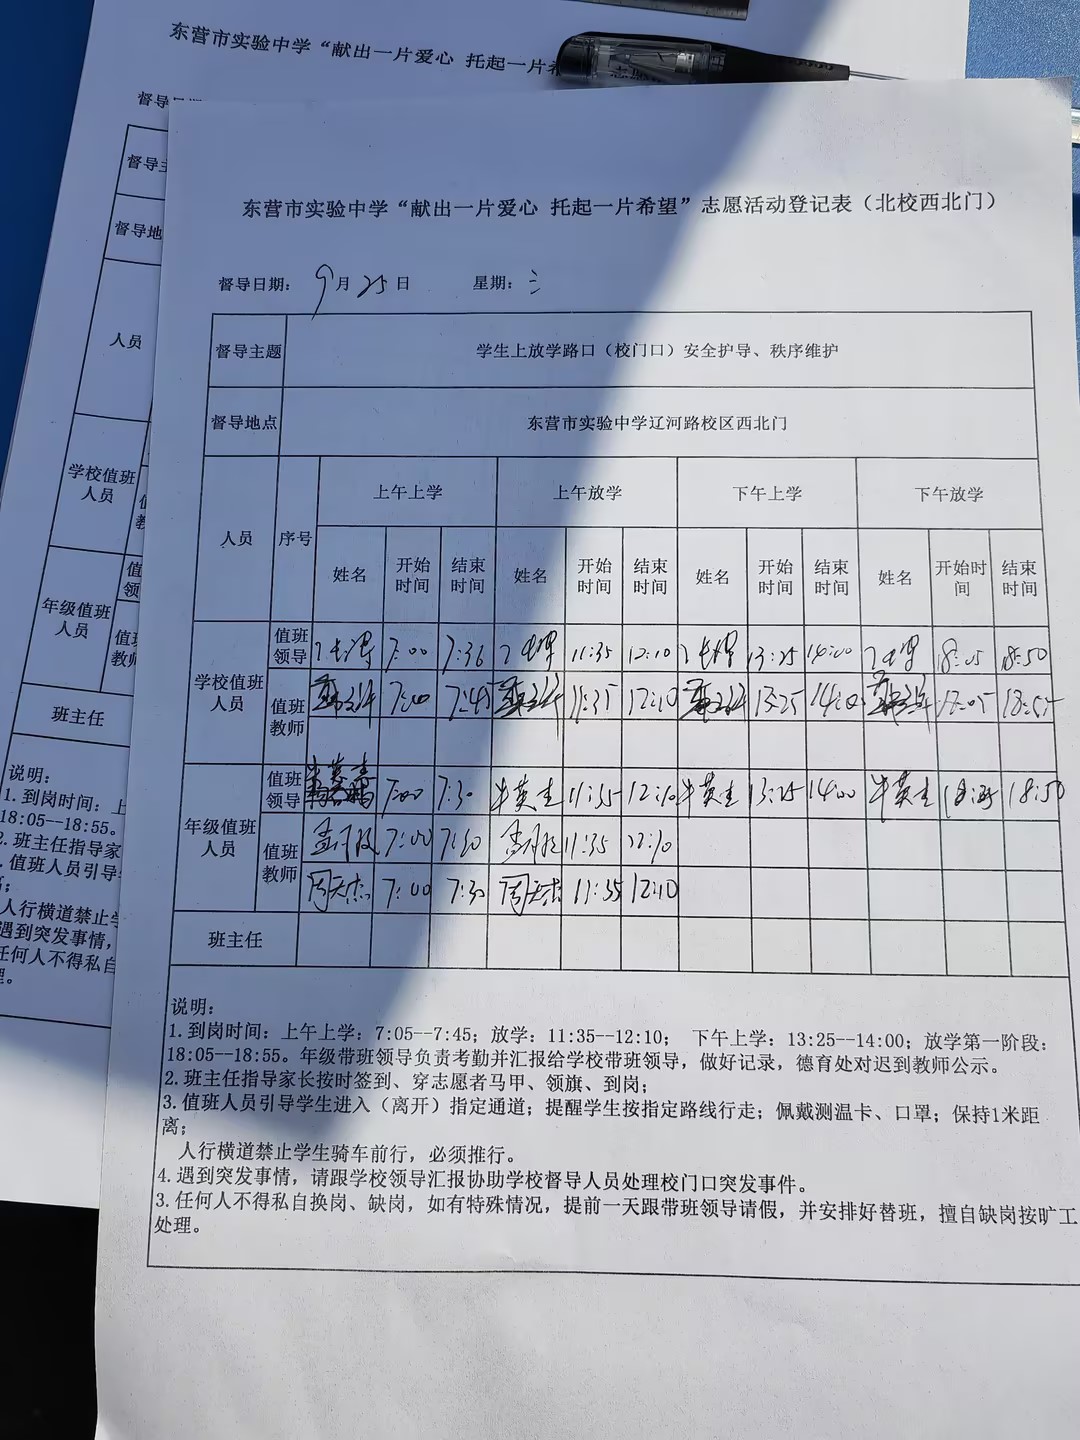 东营市实验中学“献出一片爱心 托起一片希
督导
督导
督导地
人员
学校值班
人员
年级值班
人员
值
领
值
教师
班主任
说明:
1. 到岗时间: 上
18:05--18:55。
2. 班主任指导家
值班人员引导
人行横道禁止学
遇到突发事情,
任何人不得私自
理。
东营市实验中学“献出一片爱心 托起一片希望”志愿活动登记表（北校西北门）
督导日期: 9月25日 星期: 三
督导主题 学生上放学路口（校门口）安全护导、秩序维护
督导地点 东营市实验中学辽河路校区西北门
人员 序号 上午上学 上午放学 下午上学 下午放学
姓名 开始时间 结束时间 姓名 开始时间 结束时间 姓名 开始时间 结束时间 姓名 开始时间 结束时间
学校值班人员 值班领导 7:00 7:36 11:35 12:10 13:25 14:00 18:05 18:50
值班教师 7:00 7:45 11:35 12:10 13:25 14:00 18:05 18:55
年级值班人员 值班领导 7:00 7:30 牛英杰 11:35 12:10 牛英杰 13:25 14:00 牛英杰 18:50
值班教师 7:00 7:30 11:35 12:10
周天杰 7:00 7:30 周天杰 11:35 12:10
班主任
说明:
1. 到岗时间: 上午上学: 7:05--7:45; 放学: 11:35--12:10; 下午上学: 13:25--14:00; 放学第一阶段:
18:05--18:55。年级带班领导负责考勤并汇报给学校带班领导, 做好记录, 德育处对迟到教师公示。
2. 班主任指导家长按时签到、穿志愿者马甲、领旗、到岗;
3. 值班人员引导学生进入（离开）指定通道; 提醒学生按指定路线行走; 佩戴测温卡、口罩; 保持1米距
离;
人行横道禁止学生骑车前行, 必须推行。
4. 遇到突发事情, 请跟学校领导汇报协助学校督导人员处理校门口突发事件。
3. 任何人不得私自换岗、缺岗, 如有特殊情况, 提前一天跟带班领导请假, 并安排好替班, 擅自缺岗按旷工
处理。